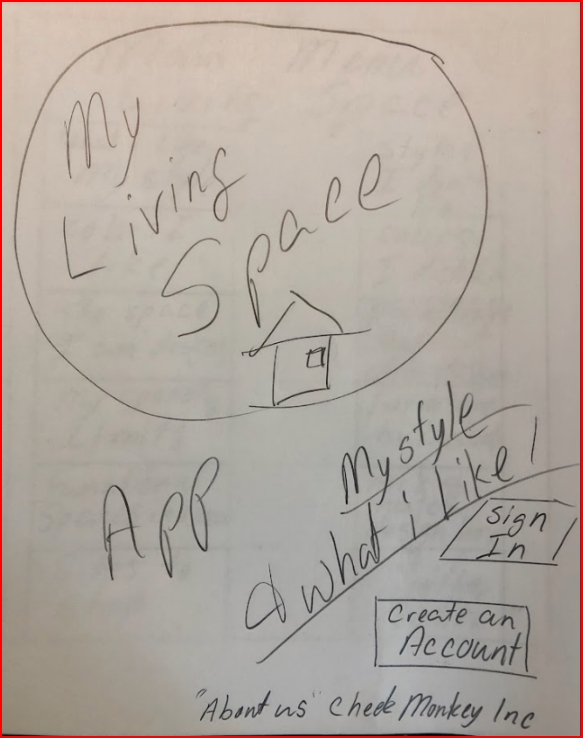 My
Living
Space
App
My style
& what i Like!
Sign
In
Create an
Account
"About us" Cheek Monkey Inc